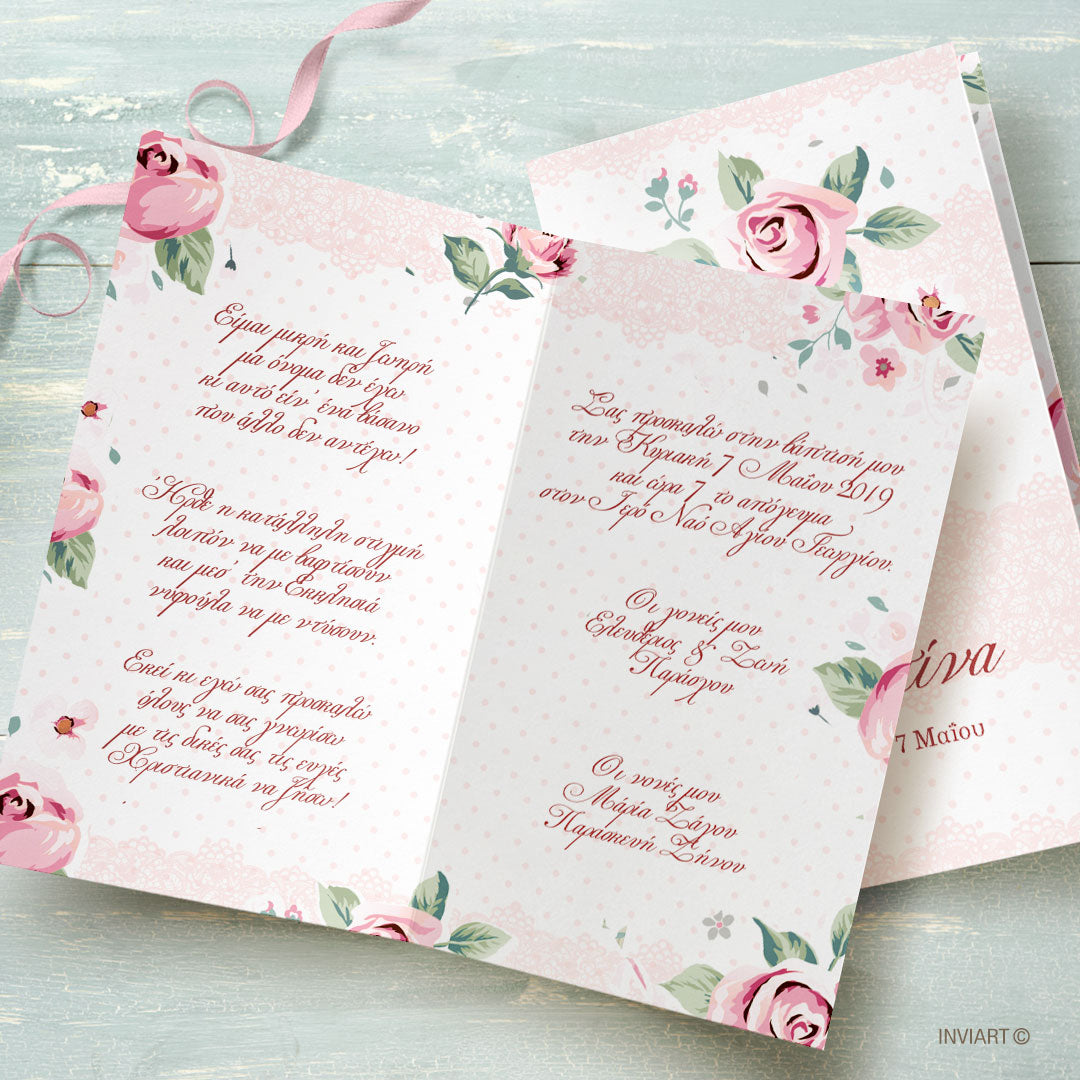 Είμαι μικρή και ζωηρή
μα όνομα δεν έχω
κι αυτό είν' ένα βάσανο
που άλλο δεν αντέχω!
Ήρθε η κατάλληλη στιγμή
λοιπόν να με βαφτίσουν
και μεσ' την Εκκλησιά
νυφούλα να με ντύσουν.
Εκεί κι εγώ σας προσκαλώ
όλους να σας γνωρίσω
με τις δικές σας τις ευχές
Χριστιανικά να ζήσω!
Σας προσκαλώ στην βάπτισή μου
την Κυριακή 7 Μαΐου 2019
και ώρα 7 το απόγευμα
στον Ιερό Ναό Αγίου Γεωργίου.
Οι γονείς μου
Ελευθέριος & Ζωή
Παράσχου
Οι νονές μου
Μάρία Ζάγου
Παρασκευή Ζήνου
ίνα
7 Μαΐου
INVIART ©